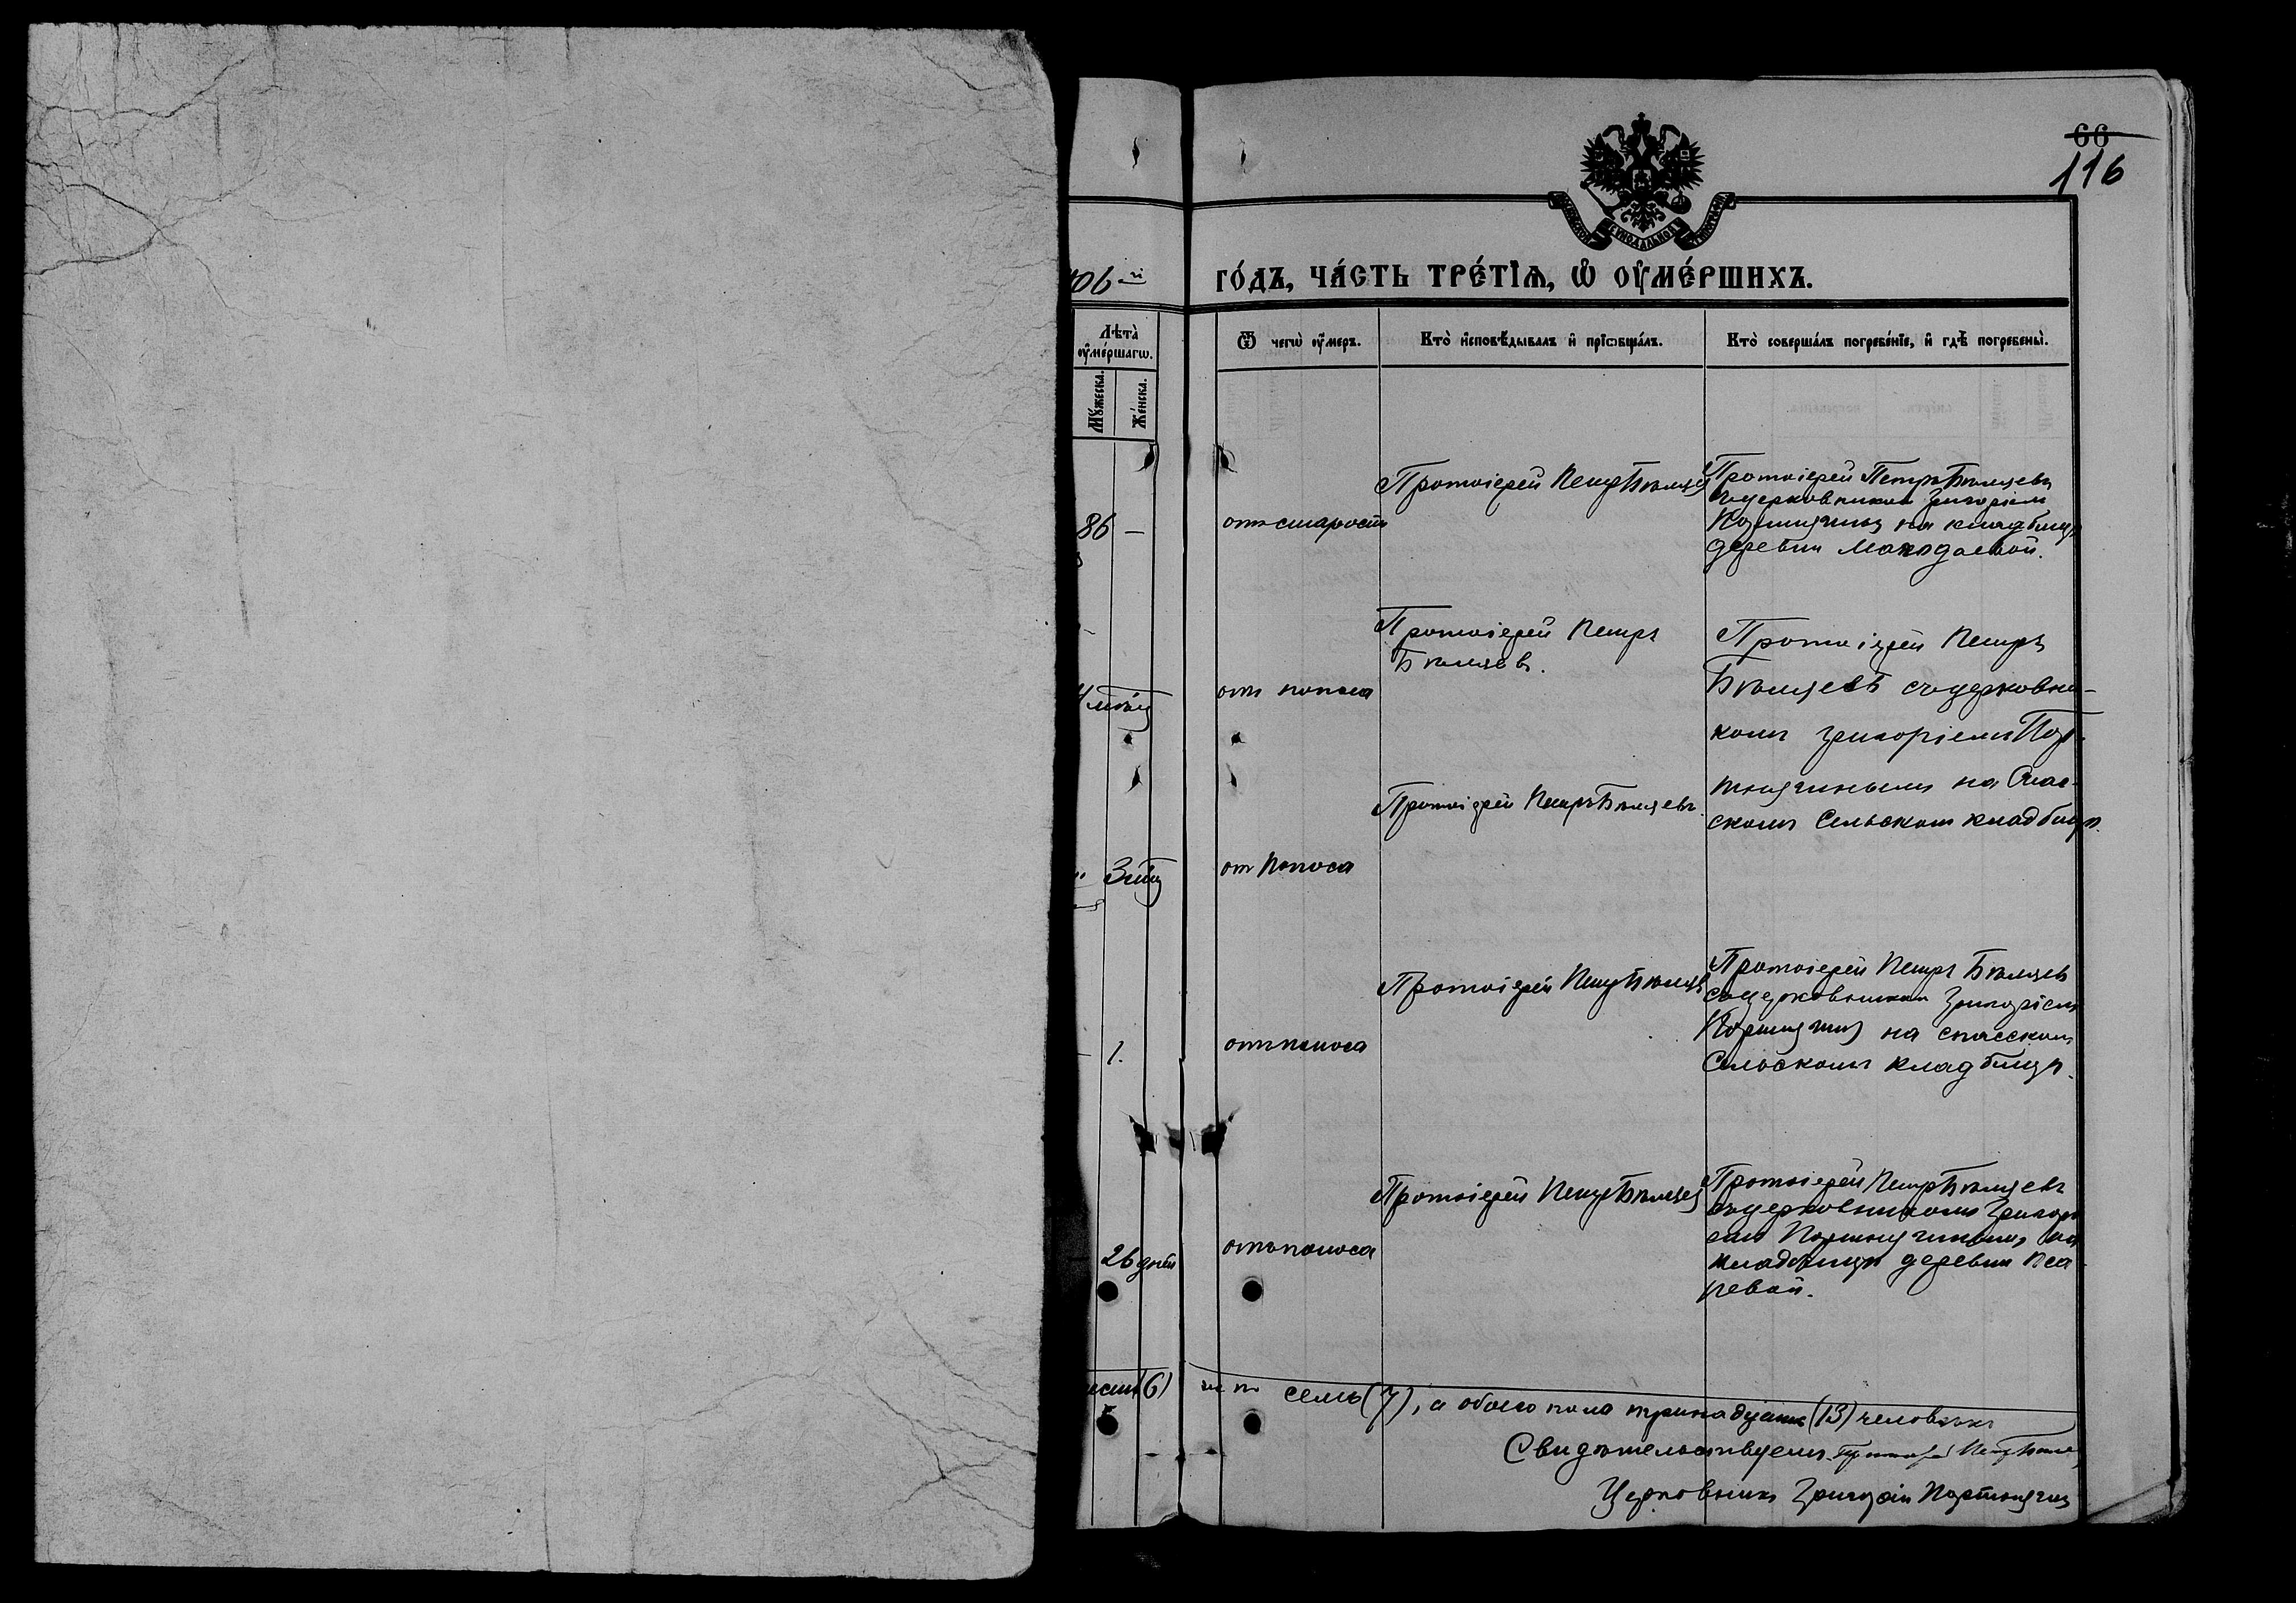 66
116
МОСКОВСКОЙ СѴНОДАЛЬНОЙ ТИПОГРАФІИ
06 й
го́дъ, ча́сть тре́тїѧ, ѡ҆ ᲂу҆ме́ршихъ.
Лѣта̀ ᲂу҆ме́ршагѡ.
Мꙋ́жеска.
Же́нска.
Ѿ чегѡ̀ ᲂу҆́меръ.
Кто̀ и҆сповѣ́дывалъ и҆ прїѡбща́лъ.
Кто̀ соверша́лъ погребе́нїе, и҆ гдѣ̀ погребены̀.
86 —
отъ старости
Протоіерей Петръ Бѣляев
Протоіерей Петръ Бѣляевъ
съ церковником Григоріем
на кладбищѣ
деревни
отъ поноса
Протоіерей Петръ
Бѣляев.
Протоіерей Петръ
Бѣляевъ съ церковни-
комъ Григоріемъ Порт-
нягинымъ на Спас-
скомъ Сельском кладбищѣ.
от поноса
Протоіерей Петръ Бѣляевъ.
1.
отъ поноса
Протоіерей Петръ Бѣляев
Протоіерей Петръ Бѣляевъ
съ церковником Григоріем
на спасском
Сельскомъ кладбищѣ.
26 дней
отъ поноса
Протоіерей Петръ Бѣляев
Протоіерей Петръ Бѣляевъ
съ церковникомъ Григорі
емъ Портнягинымъ на
кладбищѣ деревни
(6)
семь (7), а обоего пола тринадцать (13) человѣкъ
Свидѣтельствуемъ: Петръ
Церковникъ Григорій Портнягин